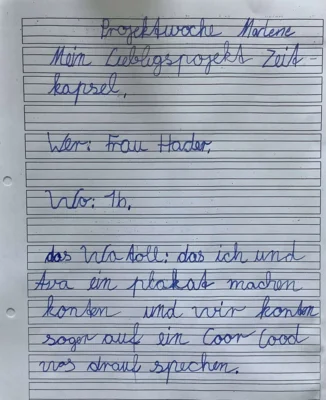 Projektwoche Marlene
Mein Liebligspojekt Zeit-
kapsel.
Wer: Frau Hader.
Wo: 1b.
das Wa toll: das ich und
Ava ein plakat machen
konten und wir konten
soger auf ein Coor Cood
was drauf spechen.